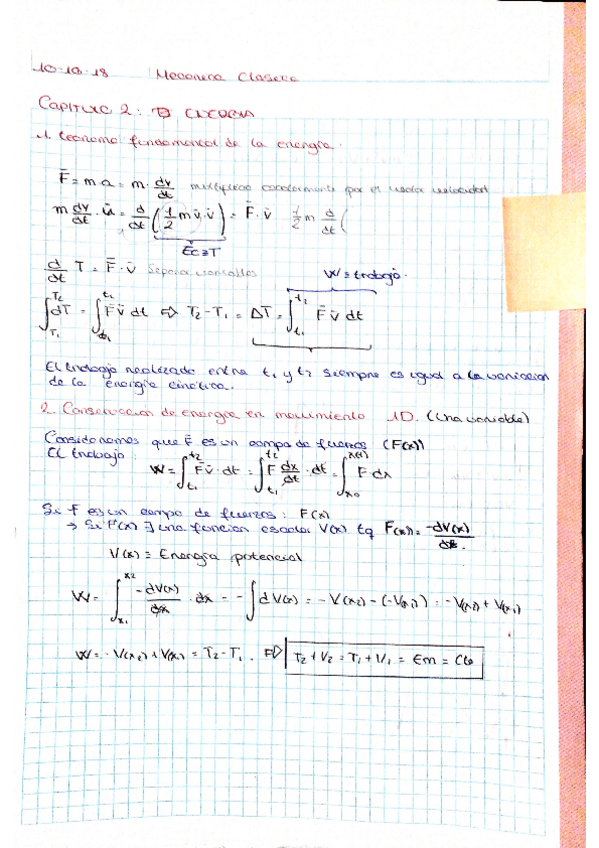 10-10-18 Mecanica Clasica
CAPITULO 2: ENERGIA
1. teorema fundamental de la energia.
F̄ = m a = m · dv/dt multiplico escalarmente por el vector velocidad
m dv/dt · ū = d/dt (1/2 m v̄ · v̄) = F̄ · v̄ 1/2 m d/dt (
Ec ≡ T
d/dt T = F̄ · v̄ Separo variables W ≡ trabajo.
∫_{T1}^{T2} dT = ∫_{t1}^{t2} F̄ v̄ dt ⇒ T2 - T1 = ΔT = ∫_{t1}^{t2} F̄ v̄ dt
El trabajo realizado entre t1 y t2 siempre es igual a la variacion
de la energia cinetica.
2. Conservacion de energia en movimiento 1D. (Una variable)
Consideramos que F̄ es un campo de fuerzas (F(x))
El trabajo: W = ∫_{t1}^{t2} F̄ v̄ · dt = ∫_{t1}^{t2} F dx/dt · dt = ∫_{x0}^{x(t)} F · dx
Si F es un campo de fuerzas: F(x)
→ Si F(x) ∃ una funcion escalar V(x) tq F(x) = -dV(x)/dx.
V(x) = Energia potencial
W = ∫_{x1}^{x2} -dV(x)/dx · dx = - ∫ dV(x) = - V(x2) - (-V(x1)) = - V(x2) + V(x1)
W = - V(x2) + V(x1) = T2 - T1. ⇒ T2 + V2 = T1 + V1 = Em = Cte